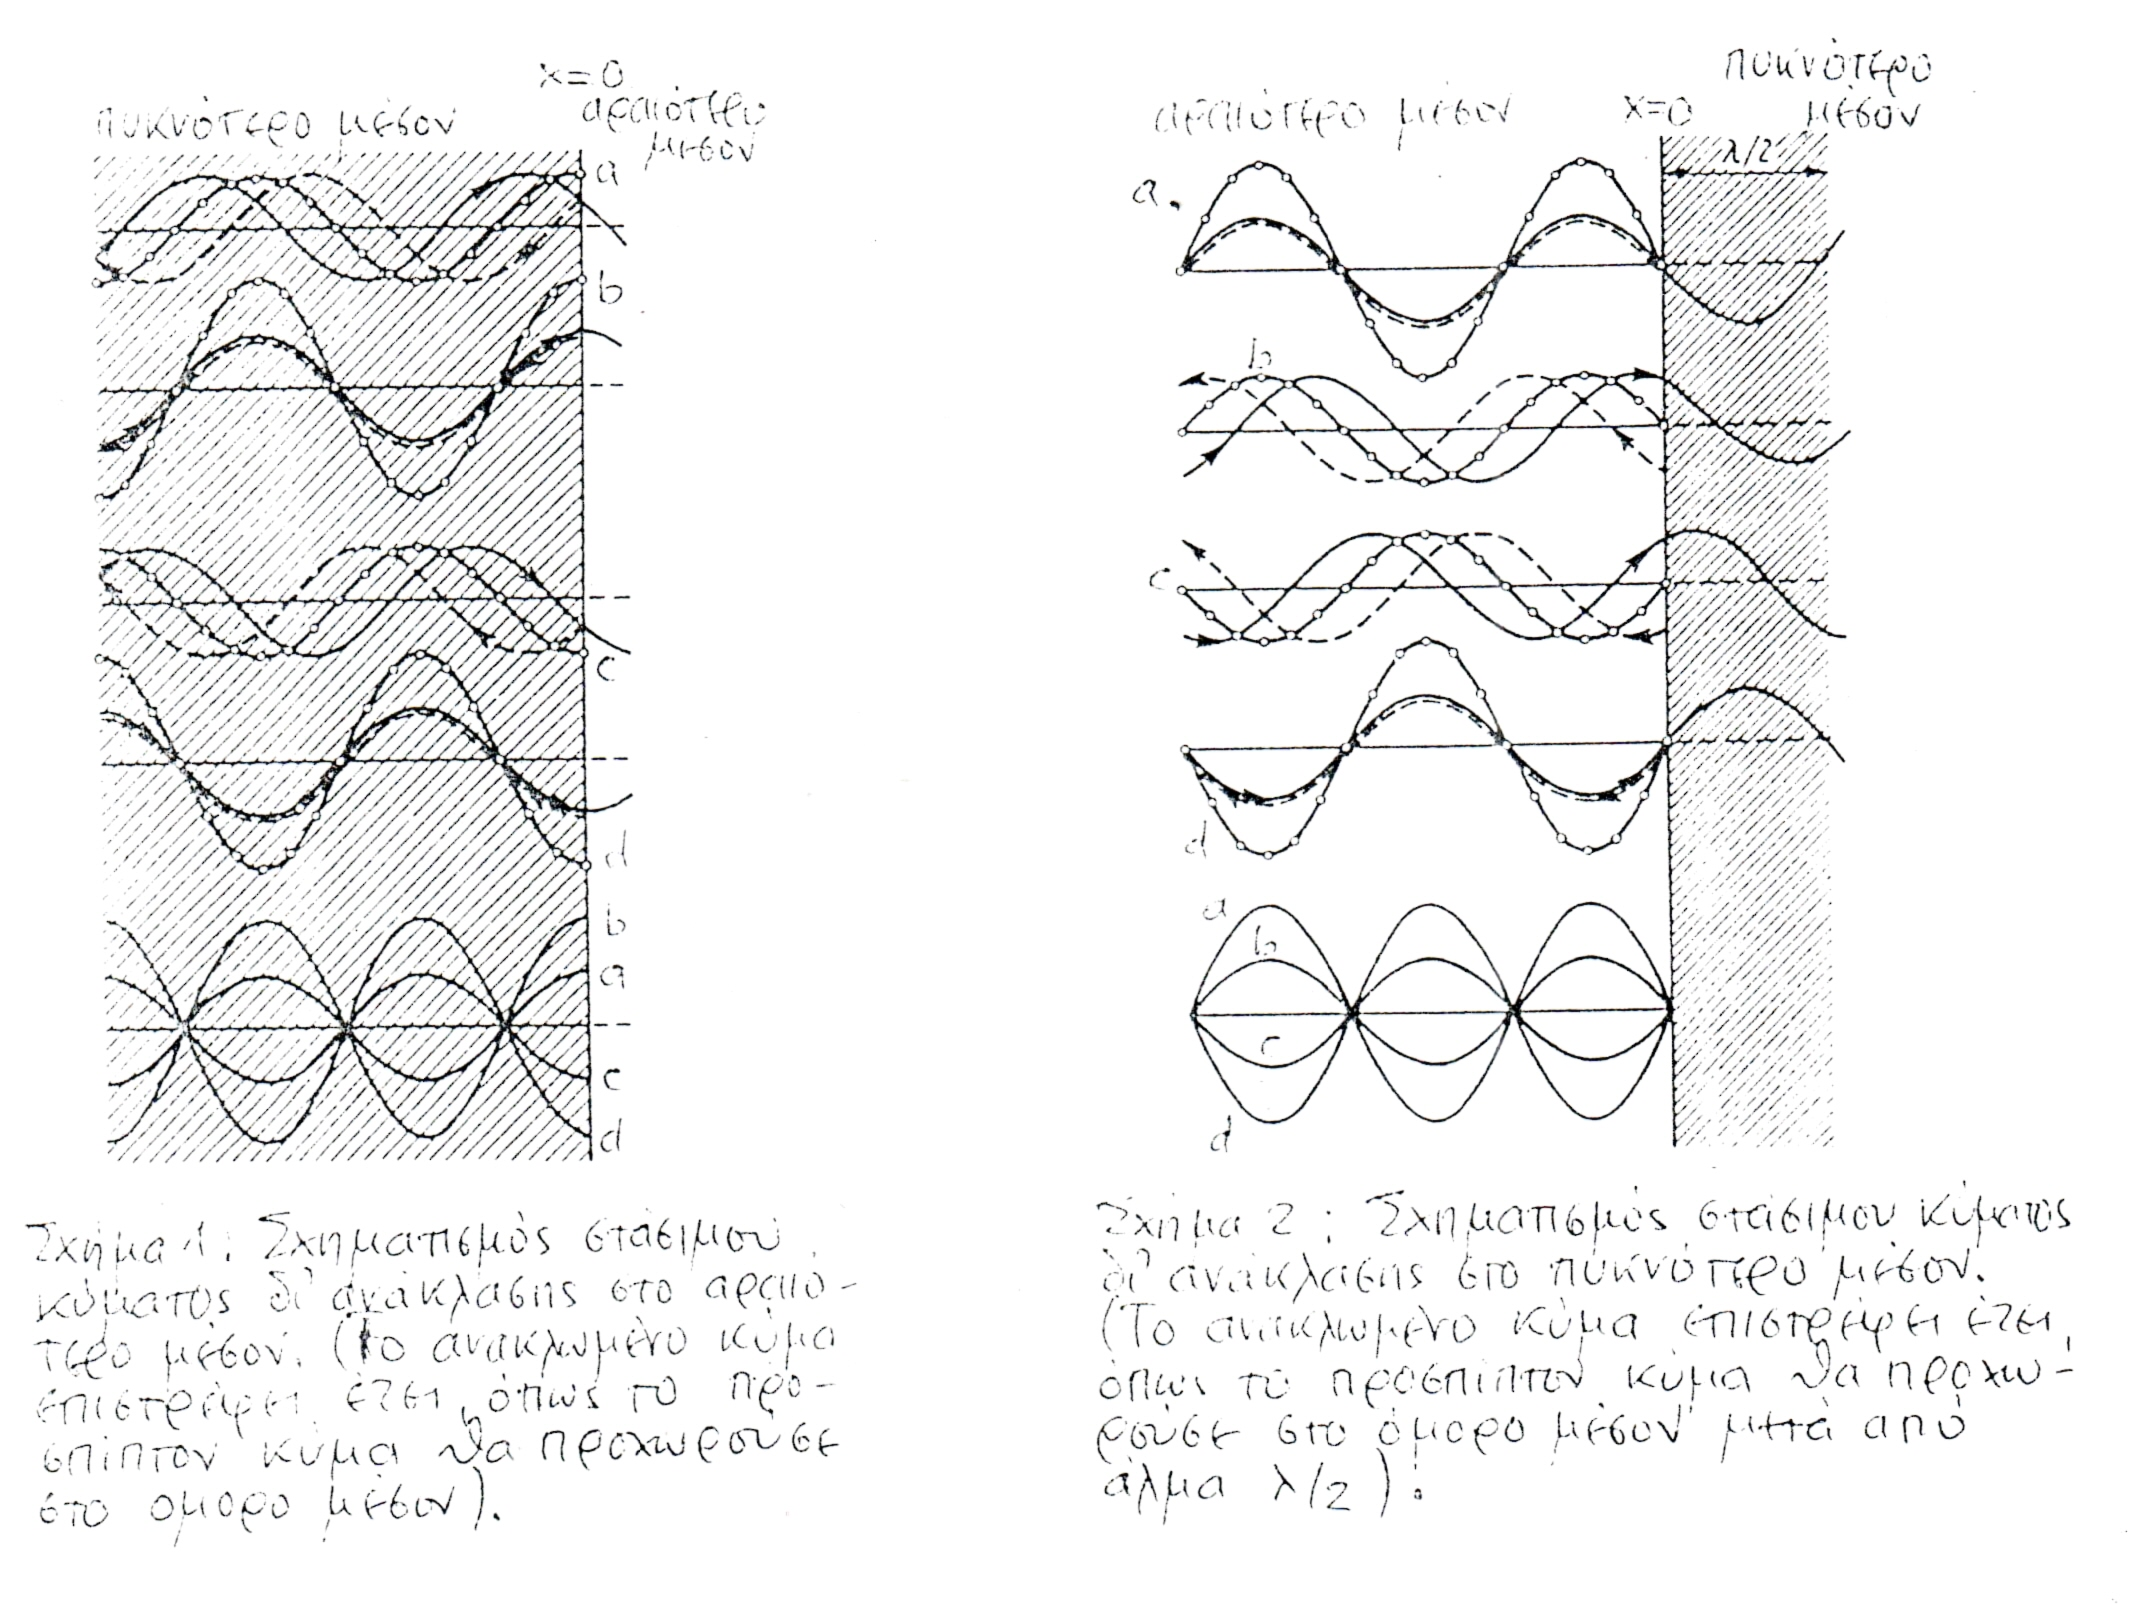 x=0
πυκνότερο μέσον
αραιότερο
μέσον
a
b
c
d
b
a
c
d
Σχήμα 1: Σχηματισμός στάσιμου
κύματος δι' ανάκλασης στο αραιό-
τερο μέσον. (Το ανακλωμένο κύμα
επιστρέφει έτσι, όπως το προ-
σπίπτον κύμα θα προχωρούσε
στο όμορο μέσον).
πυκνότερο
μέσον
αραιότερο μέσον
x=0
λ/2
a.
b
c
d
a
b
c
d
Σχήμα 2: Σχηματισμός στάσιμου κύματος
δι' ανάκλασης στο πυκνότερο μέσον.
(Το ανακλωμένο κύμα επιστρέφει έτσι,
όπως το προσπίπτον κύμα θα προχω-
ρούσε στο όμορο μέσον μετά από
άλμα λ/2).